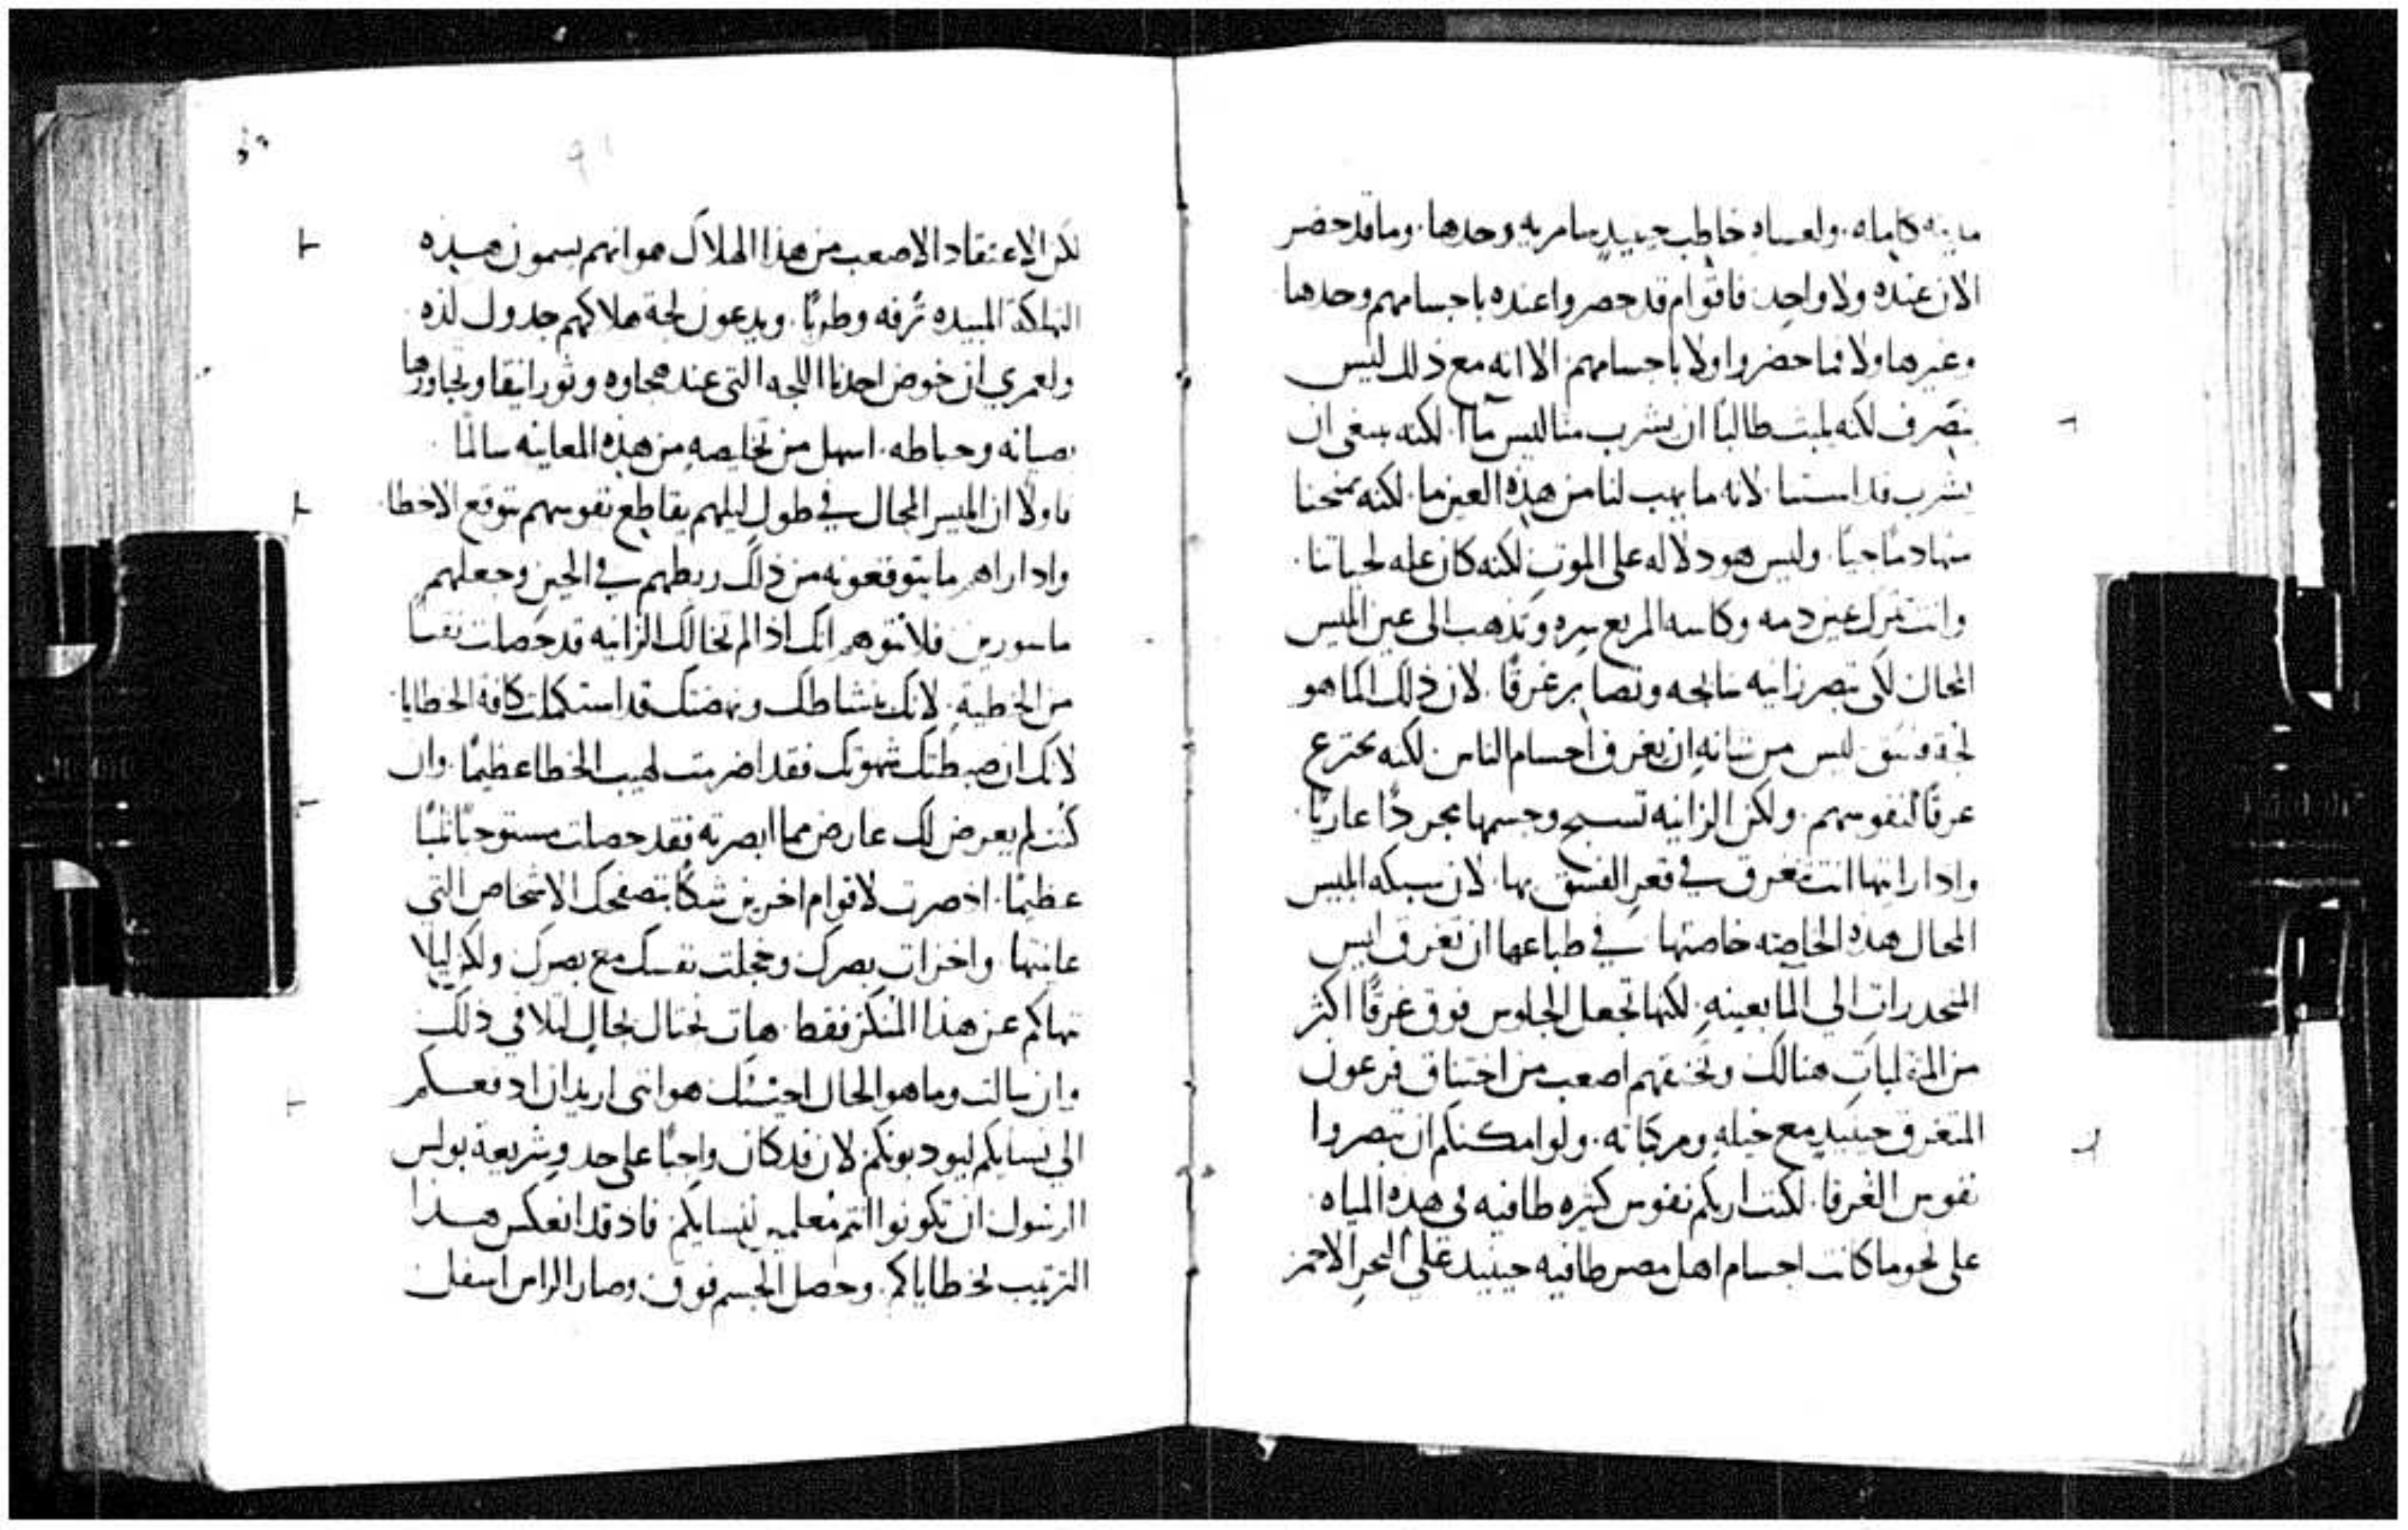 مدينه كامله. ولعساه خاطب حينيد سامريه وحدها. وما قد حضر
الان عنده ولا واحد. فاقوام قد حضروا عنده باجسامهم وحدها
وغيرها ولا فما حضروا ولا باجسامهم الا انه مع ذلك ليس
ينصرف لكنه لبث طالبًا ان يشرب منا ليس مآا. لكنه يبتغى ان
يشرب قداستنا. لانه ما يهب لنا من هذه العين ما. لكنه يمنحنا
منها دمًا حيًا. وليس هو دلاله على الموت لكنه كان عله لحياتنا.
وانت تترك عين دمه وكاسه المريع سره وتذهب الى عين ابليس
المحال لكى تبصر زانيه سابحه وتصابر غرقًا. لان ذلك الما هو
لجة فسق ليس من شانه ان يغرق احسام الناس لكنه يخترع
غرقًا لنفوسهم. ولكن الزانيه تسبح وجسمها مجردًا عاريًا.
واذا رايتها انت تغرق في قعر الفسق بها. لان سبكه ابليس
المحال هذه الخاصه خاصتها في طباعها ان تغرق ليس
المنحدرات الى الما بعينه. لكنها تجعل الجلوس فوق غرقًا اكثر
من المنقلبات هنالك وتخنقهم اصعب من اختناق فرعون
المتغرق حينيد مع خيله ومركباته. ولو امكنكم ان تبصروا
نفوس الغرقا. لكنت اريكم نفوس كثيره طافيه في هذه المياه.
على نحو ما كانت اجسام اهل مصر طافيه حينيد على البحر الاحمر
لكن الاعتقاد الاصعب من هذا الهلاك هو انهم يسمون هذه
التهلكة المبيده ترفه وطربًا. ويدعون لجة هلاكهم جدول لذه
ولعمري ان خوض احدنا اللجه التى عند مجاوه وثور انيقا وتجاوزها
بصيانه وحياطه. اسهل من تخليصه من هذه المعاينه سالمًا.
فاولا ان ابليس المحال في طول ليلهم يقاطع نفوسهم بتوقع الاخطا.
واذا راهم ما يتوقعونه من ذلك ربطهم في الحين وجعلهم
ماسورين فلا تتوهم انك اذا لم تخالك الزانيه قد حصلت نقيا
من الخطية. لانك بنشاطك ونهضتك قد استكملت كافة الخطايا
لانك ان ضبطتك شهوتك فقد اضرمت لهيب الخطا عظيمًا. وان
كنت لم يعرض لك عارض مما ابصرته فقد حصلت مستوجبًا ثلبًا
عظيمًا. اذ صرت لاقوام اخرين شكًا بتصفحك الاشخاص التي
عاينتها. واخزات بصرك وخجلت نفسك مع بصرك ولكن ليلا
ننهاكم عن هذا المنكر فقط. هات نحتال بحال لتلافي ذلك
وان سالت وما هو الحال اجبتك هو انني اريد ان ادفعكم
الى نسايكم ليودبونكم لان قد كان واجبًا على حد وشريعة بولس
الرسول ان تكونوا انتم معلمين لنسايكم. فاذ قد انعكس هذا
الترتيب لخطاياكم. وحصل الجسم فوق. وصار الراس اسفل